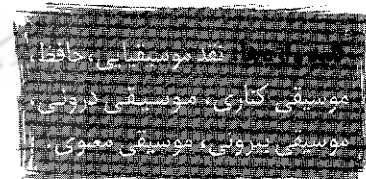 نقد موسیقایی، حافظ،
موسیقی کناری، موسیقی درونی،
موسیقی بیرونی، موسیقی معنوی.